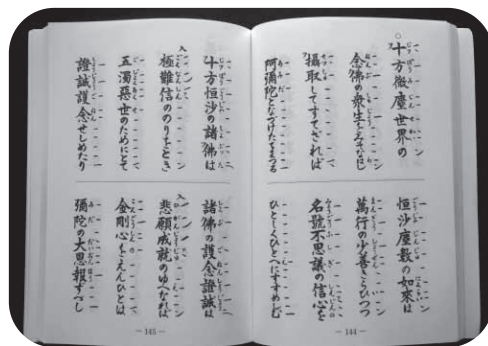 ○十方微塵世界の
念佛の衆生をみそなはし
攝取してすてざれば
阿彌陀となづけたてまつる
恒沙塵數の如來は
萬行の少善きらひつつ
名號不思議の信心を
ひとしくひとへにすすめしむ
— 144 —
十方恒沙の諸佛は
極難信ののりをとき
五濁惡世のためにとて
證誠護念せしめたり
諸佛の護念證誠は
悲願成就のゆへなれば
金剛心をえんひとは
彌陀の大恩報ずべし
— 145 —